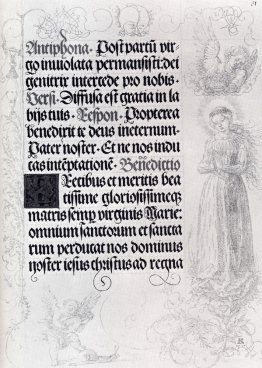 Antiphona. Post partū vir-
go inuiolata permansisti: dei
genitrix intercede pro nobis.
Versi. Diffusa est gratia in la
bijs tuis. Respon. Propterea
benedixit te deus ineternum.
Pater noster. Et ne nos indu
cas intēptationē. Benedictio
Precibus et meritis bea
tissime gloriosissimeqȝ
matris semꝑ virginis Marie:
omnium sanctorum et sancta
rum perducat nos dominus
noster iesus christus ad regna